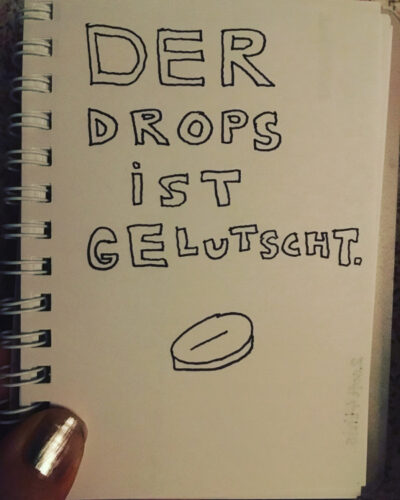 DER
DROPS
iST
GELUTSCHT.